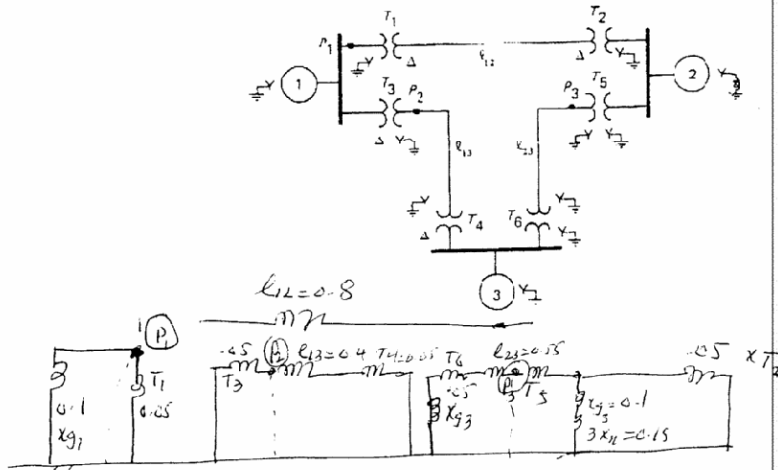 T₁
T₂
P₁
ℓ₁₂
Y
Δ
Δ
Y
Y
1
2
Y
T₃
P₂
P₃
T₅
Δ
Y
Y
Y
ℓ₁₃
ℓ₂₃
Y
Y
T₄
T₆
Δ
Y
3
Y
ℓ₁₂=0.8
1
P₁
.05
P₂
ℓ₁₃=0.4
T₄=0.05
T₆
.05
T₁
T₃
.05
P₃
T₅
0.1
0.05
xg₃
=0.1
xg₁
3xn=0.15